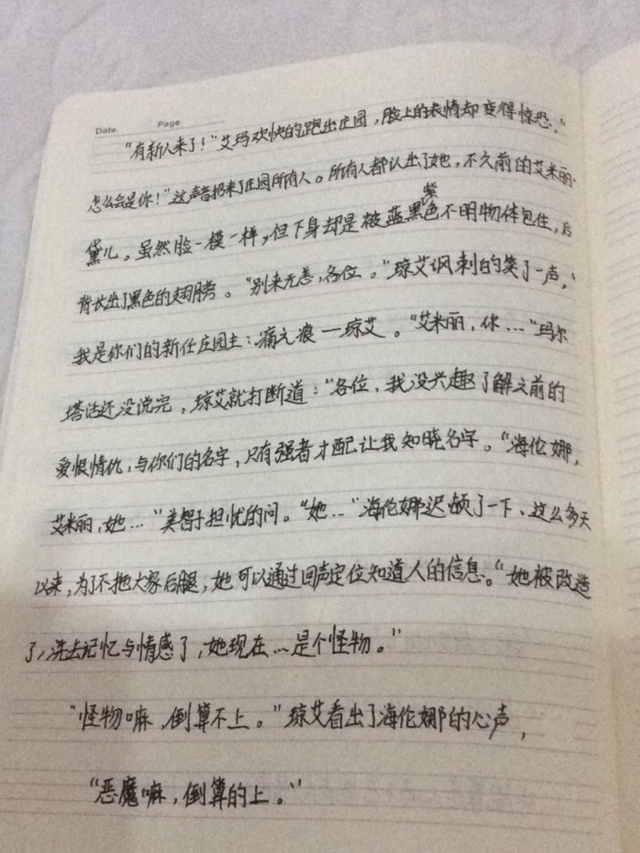 Date Page
“有新人来了！”艾玛欢快的跑出庄园，脸上的表情却变得惊恐，“
怎么会是你！”这声音招来了庄园所有人。所有人都认出了她，不久前的艾米丽·
黛儿。虽然脸一模一样，但下身却是被蓝黑紫色不明物体包住，后
背长出了黑色的翅膀。“别来无恙，各位。”琼艾讽刺的笑了一声，“
我是你们的新任庄园主：痛之痕—琼艾。“艾米丽，你…”玛尔
塔话还没说完，琼艾就打断道：“各位，我没兴趣了解之前的
爱恨情仇，与你们的名字，只有强者才配让我知晓名字。“海伦娜，
艾米丽，她…”美智子担忧的问。“她…”海伦娜迟顿了一下、这么多天
以来，为了不拖大家后腿，她可以通过回声定位知道人的信息。“她被改造
了，洗去记忆与情感了，她现在…是个怪物。”
“怪物嘛，倒算不上。”琼艾看出了海伦娜的心声，
“恶魔嘛，倒算的上。”